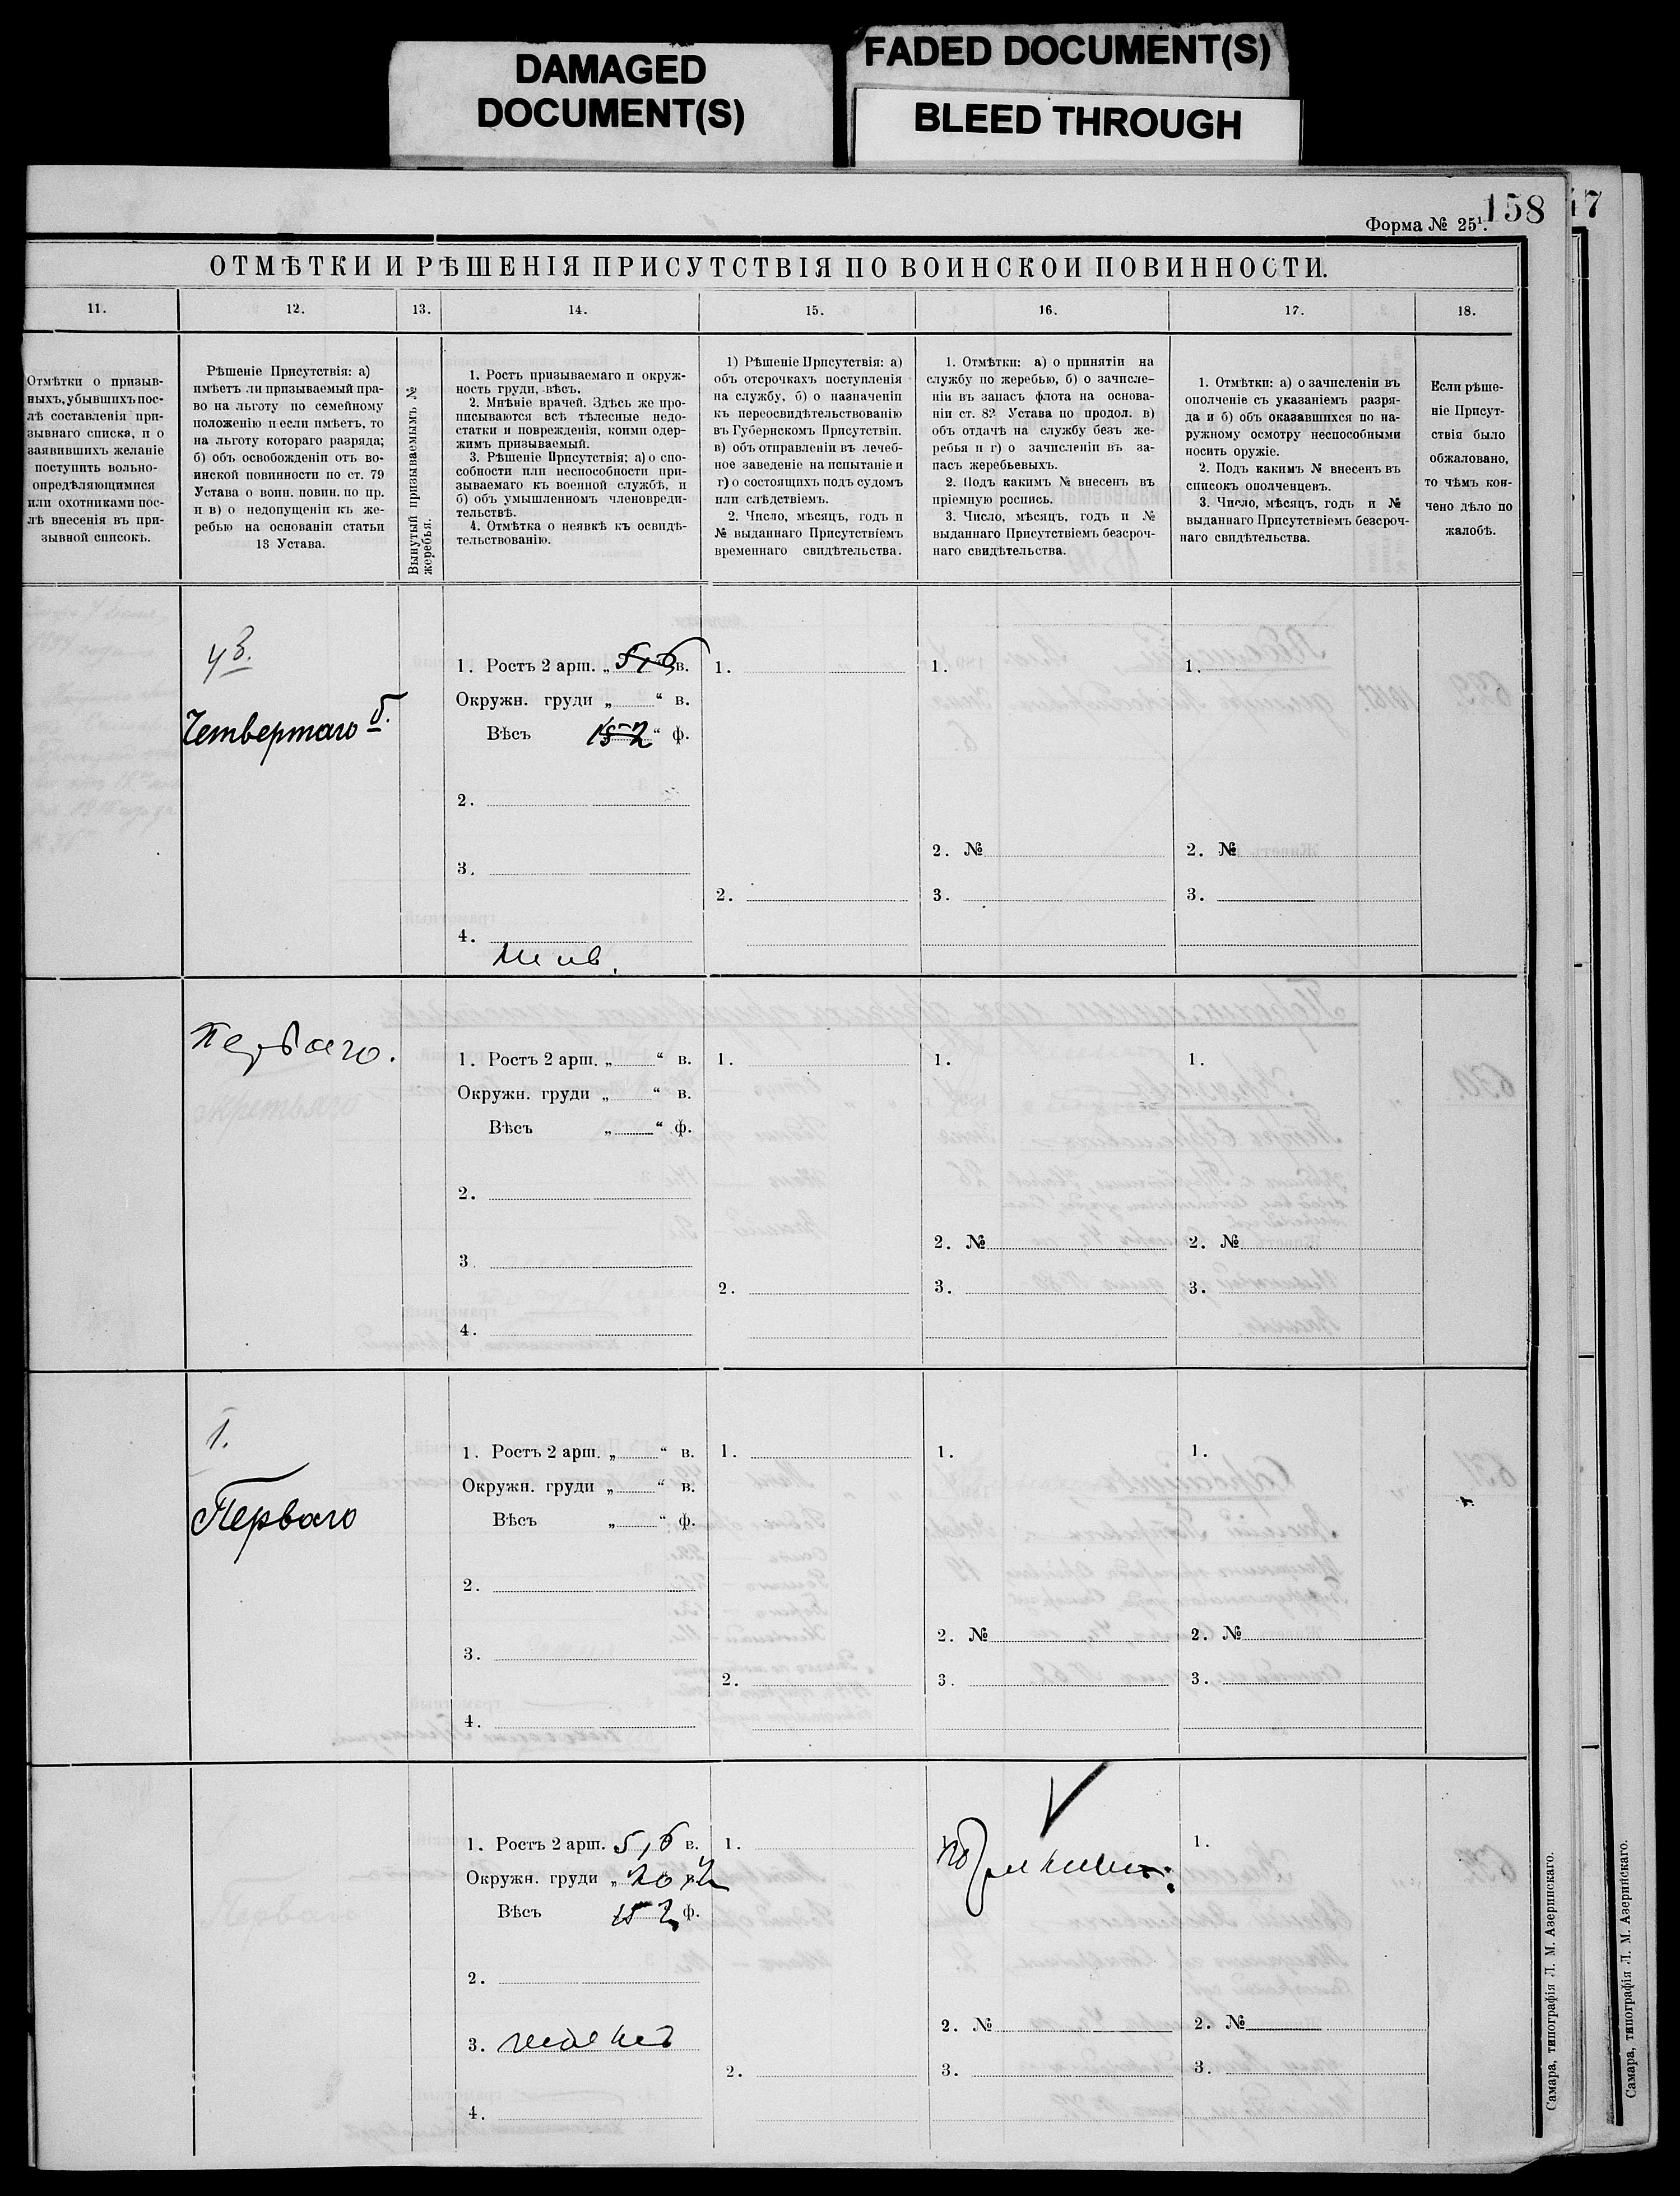 DAMAGED
DOCUMENT(S)
FADED DOCUMENT(S)
BLEED THROUGH
158
47
Форма № 25¹.
ОТМѢТКИ И РѢШЕНІЯ ПРИСУТСТВІЯ ПО ВОИНСКОЙ ПОВИННОСТИ.
11.
12.
13.
14.
15.
16.
17.
18.
Отмѣтки о призыв-
ныхъ, убывшихъ пос-
лѣ составленія при-
зывнаго списка, и о
заявившихъ желаніе
поступить вольно-
опредѣляющимися
или охотниками пос-
лѣ внесенія въ при-
зывной списокъ.
Рѣшеніе Присутствія: а)
имѣетъ ли призываемый пра-
во на льготу по семейному
положенію и если имѣетъ, то
на льготу котораго разряда;
б) объ освобожденіи отъ во-
инской повинности по ст. 79
Устава о воин. повин. по пр.
и в) о недопущеніи къ же-
ребью на основаніи статьи
13 Устава.
Вынутый призываемымъ №
жеребья.
1. Ростъ призываемаго и окруж-
ность груди, вѣсъ.
2. Мнѣніе врачей. Здѣсь же про-
писываются всѣ тѣлесные недо-
статки и поврежденія, коими одер-
жимъ призываемый.
3. Рѣшеніе Присутствія: а) о спо-
собности или неспособности при-
зываемаго къ военной службѣ, и
б) объ умышленномъ членовреди-
тельствѣ.
4. Отмѣтка о неявкѣ къ освидѣ-
тельствованію.
1) Рѣшеніе Присутствія: а)
объ отсрочкахъ поступленія
на службу, б) о назначеніи
къ переосвидѣтельствованію
въ Губернскомъ Присутствіи.
в) объ отправленіи въ лечеб-
ное заведеніе на испытаніе и
г) о состоящихъ подъ судомъ
или слѣдствіемъ.
2. Число, мѣсяцъ, годъ и
№ выданнаго Присутствіемъ
временнаго свидѣтельства.
1. Отмѣтки: а) о принятіи на
службу по жеребью, б) о зачисле-
ніи въ запасъ флота на основа-
ніи ст. 82 Устава по продол. в)
объ отдачѣ на службу безъ же-
ребья и г) о зачисленіи въ за-
пасъ жеребьевыхъ.
2. Подъ какимъ № внесенъ въ
пріемную роспись.
3. Число, мѣсяцъ, годъ и №
выданнаго Присутствіемъ безсроч-
наго свидѣтельства.
1. Отмѣтки: а) о зачисленіи въ
ополченіе съ указаніемъ разря-
да и б) объ оказавшихся по на-
ружному осмотру неспособными
носить оружіе.
2. Подъ какимъ № внесенъ въ
списокъ ополченцевъ.
3. Число, мѣсяцъ, годъ и №
выданнаго Присутствіемъ безсроч-
наго свидѣтельства.
Если рѣше-
ніе Присут-
ствія было
обжаловано,
то чѣмъ кон-
чено дѣло по
жалобѣ.
Четвертаго б.
1. Ростъ 2 арш. „ 5,6 в.
Окружн. груди „ “ в.
Вѣсъ 152 “ ф.
2.
3.
4.
1.
2.
1.
2. №
3.
1.
2. №
3.
Перваго.
третьяго
1. Ростъ 2 арш. „ “ в.
Окружн. груди „ “ в.
Вѣсъ „ “ ф.
2.
3.
4.
1.
2.
1.
2. №
3.
1.
2. №
3.
1.
Перваго
1. Ростъ 2 арш. „ “ в.
Окружн. груди „ “ в.
Вѣсъ „ “ ф.
2.
3.
4.
1.
2.
1.
2. №
3.
1.
2. №
3.
Перваго
1. Ростъ 2 арш. 5,6 в.
Окружн. груди „ 20 ½
Вѣсъ 152 ф.
2.
3.
4.
1.
2.
2. №
3.
1.
2. №
3.
Самара, типографія Л. М. Азеринскаго.
Самара, типографія Л. М. Азеринскаго.